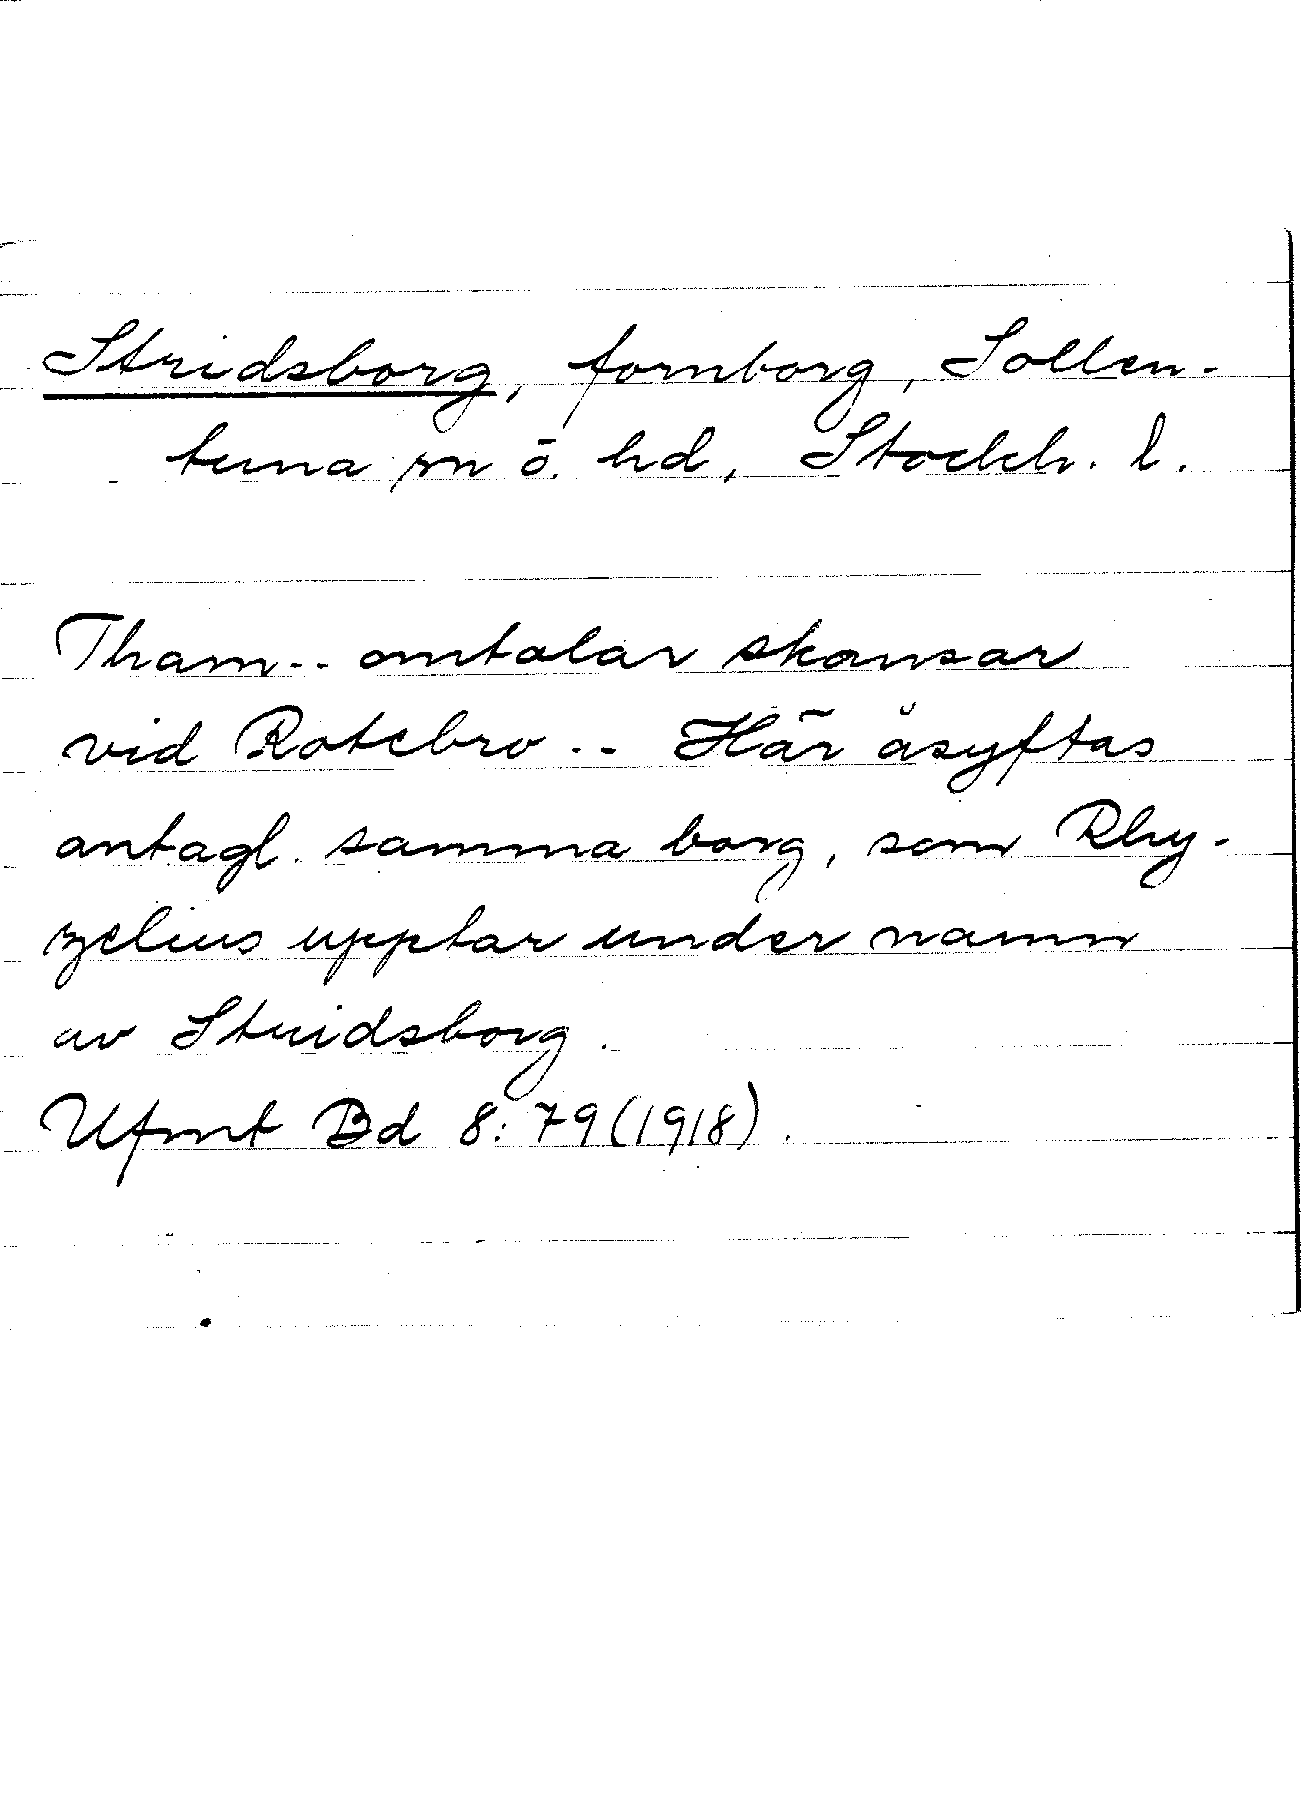 Stridsborg, fornborg, Sollen-
tuna sn o. hd, Stockh. l.
Tham -- omtalar skansar
vid Rotebro -- Här åsyftas
antagl. samma borg, som Rhy-
zelius upptar under namn
av Stridsborg.
Ufmt Bd 8:79 (1918).